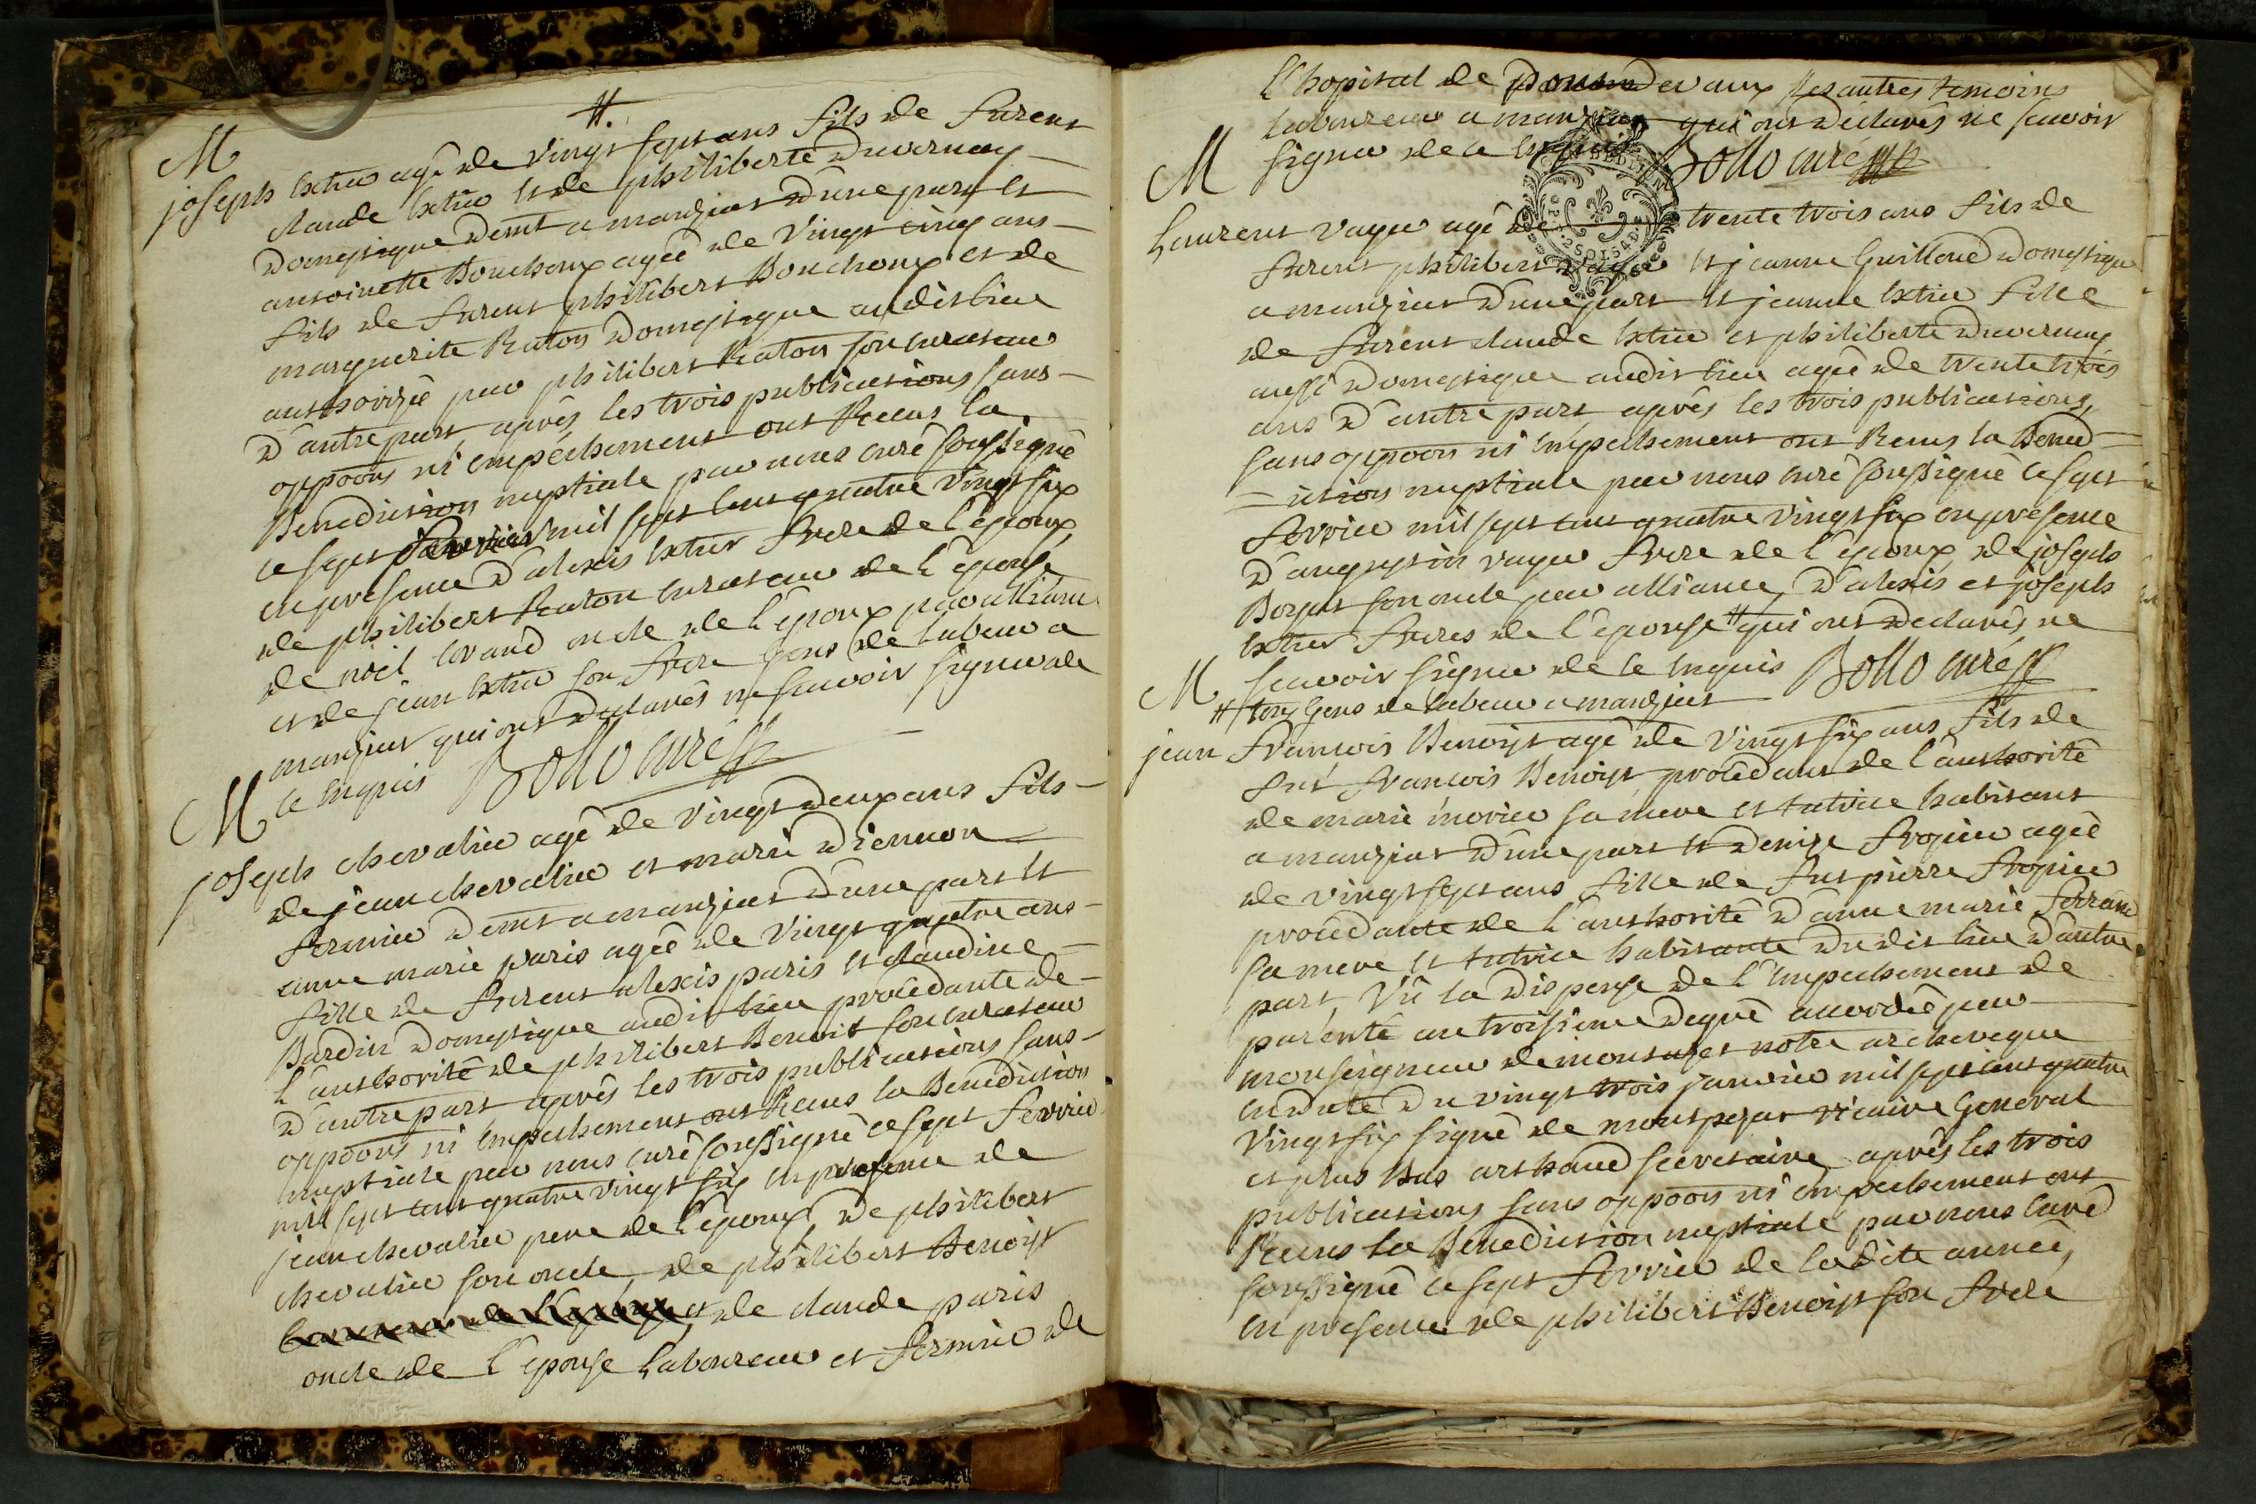 4.
M
joseph extier agé de vingt sept ans fils de furent
claude extier et de philiberte duvernay
domestique demt a manziat d'une part et
antoinette Bouchoux agée de vingt cinq ans
fils de furent philibert Bouchoux et de
marguerite Raton domestique audit lieu
authorizée par philibert Raton son curateur
d'autre part après les trois publications sans
oppoõns ni empéchement ont Receus la
Benediction nuptiale par nous curé soussigné
ce sept fevrier mil sept cent quatre vingt six
en presence d'alexis extier frere de l'epoux
de philibert Raton curateur de l'épouse
de noël brand oncle de l'époux par alliance
et de jean extier son frere gens de labeur a
manziat qui ont declarés ne scavoir signer de
ce enquis Bollo curé
M
joseph chevalier agé de vingt deux ans fils
de jean chevalier et marie diennon
fermier demt a manziat d'une part et
anne marie paris agée de vingt quatre ans
fille de furent alexis paris et claudine
Bardin domestique audit lieu procédante de
l'authorité de philibert Benoit son curateur
d'autre part après les trois publications sans
oppoõns ni empechement ont Receus la Benediction
nuptiale par nous curé soussigné ce sept fevrier
mil sept cent quatre vingt six en presence de
jean chevalier pere de l'époux, de philibert
chevalier son oncle, de philibert Benoist
et de claude paris
oncle de l'epouse laboureur et fermier de
l'hopital de devaux les autres temoins
laboureur a manziat qui ont déclarés ne scavoir
signer de ce enquis Bollo curé
M
Laurent vayer agé de trente trois ans fils de
furent philibert vayer et jeanne Guilloud domestique
a manziat d'une part et jeanne extier fille
de furent claude extier et philiberte duvernay
aussi domestique audit lieu agée de trente trois
ans d'autre part après les trois publications
sans oppoõn ni empechement ont Receus la Bened
=iction nuptiale par nous curé soussigné ce sept
fevrier mil sept cent quatre vingt six en presence
d'augustin vayer frere de l'epoux, de joseph
Boyat son oncle par alliance, d'alexis et joseph
extier freres de l'epouse # qui ont declarés ne
scavoir signer de ce enquis Bollo curé
# tous gens de labeur a manziat
M
jean francois Benoist agé de vingt six ans fils de
fut francois Benoist procédant de l'authorité
de marie morier sa mere et tutrice habitant
a manziat d'une part et denize fropier agée
de vingt sept ans fille de fut pierre fropier
procédante de l'authorité d'anne marie ferrand
sa mere et tutrice habitante dudit lieu d'autre
part, vû la dispense de l'empechement de
parenté au troisieme degré accordée par
monseigneur de montazet notre archeveque
en date du vingt trois janvier mil sept cent quatre
vingt six signé de montpezat vicaire general
et plus bas arthaud secretaire, après les trois
publications sans oppoõn ni empechement ont
Receus la Benediction nuptiale par nous curé
soussigné ce sept fevrier de ladite année,
en presence de philibert Benoist son frere